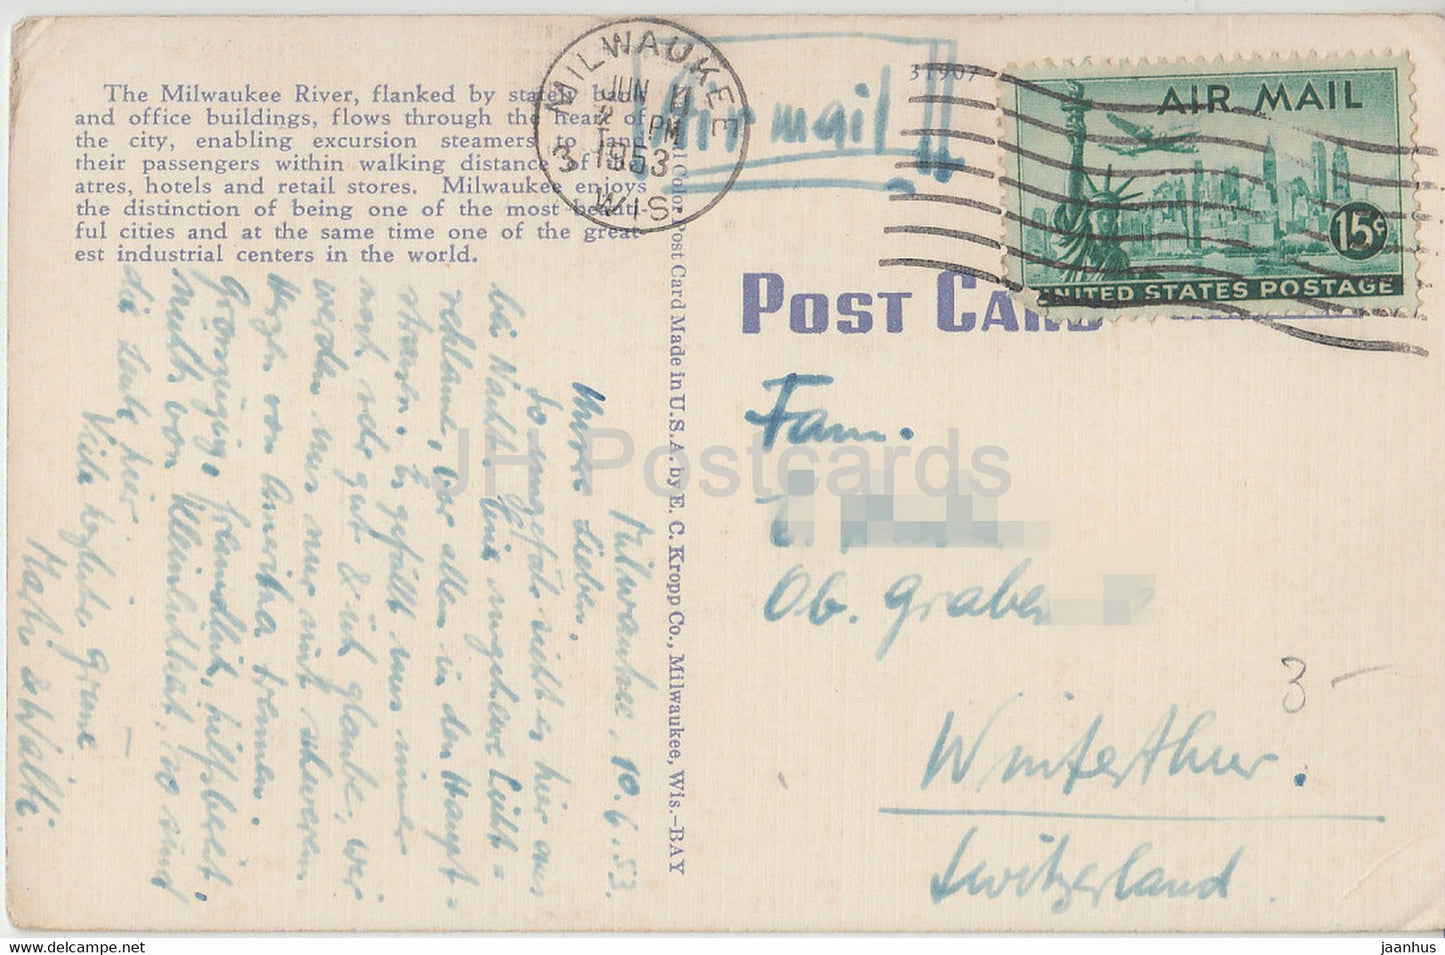 The Milwaukee River, flanked by stately bank
and office buildings, flows through the heart of
the city, enabling excursion steamers to land
their passengers within walking distance of the-
atres, hotels and retail stores. Milwaukee enjoys
the distinction of being one of the most beauti-
ful cities and at the same time one of the great-
est industrial centers in the world.
MILWAUKEE
JUN 11
PM
1953
3
WIS.
Air mail
31907
AIR MAIL
15c
UNITED STATES POSTAGE
POST CARD
Color Post Card Made in U.S.A. by E. C. Kropp Co., Milwaukee, Wis.—BAY
Milwaukee, 10.6.53.
Meine Lieben,
So ungefähr sieht es hier aus
bei Nacht. Eine ungeheure Licht=
reklame, vor allem in den Haupt=
strassen. Es gefällt uns immer
noch sehr gut & ich glaube, wir
werden uns nur mit schwerem
Herzen von Amerika trennen.
Grosszügig, freundlich, hilfsbereit,
nichts von Kleinlichkeit, so sind
die Leute hier.
Viele herzliche Grüsse
& Walti.
Fam.
Ob. Graben
Winterthur.
Switzerland
3 –
JH Postcards
jaanhus — www.delcampe.net